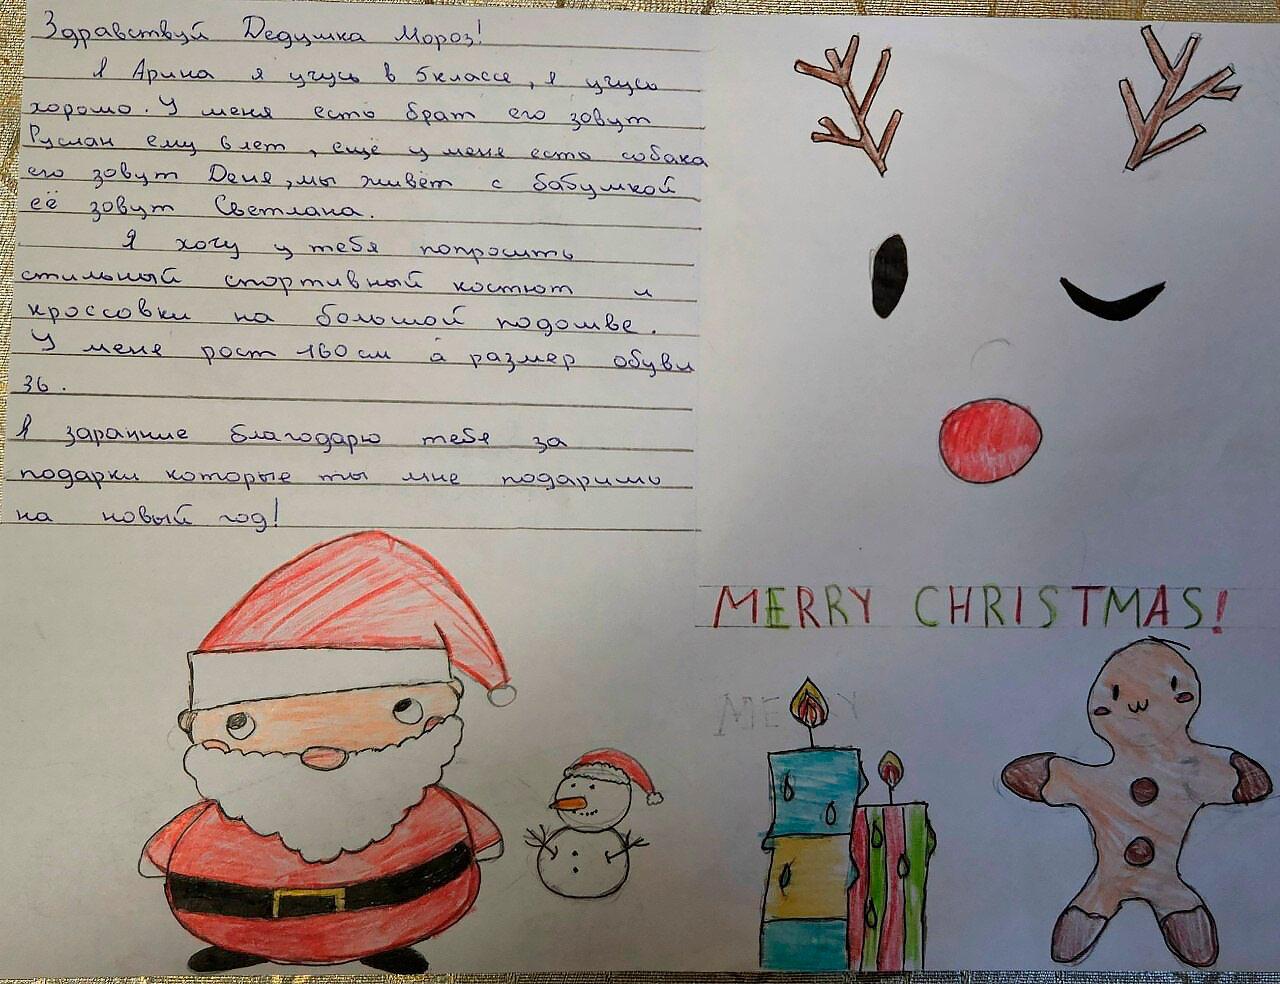 Здравствуй Дедушка Мороз!
Я Арина я учусь в 5 классе, я учусь
хорошо. У меня есть брат его зовут
Руслан ему 8 лет, ещё у меня есть собака
его зовут Деня, мы живёт с бабушкой
её зовут Светлана.
Я хочу у тебя попросить
стильный спортивный костюм и
кроссовки на большой подошве.
У меня рост 160 см а размер обуви
36.
Я заранние благодарю тебя за
подарки которые ты мне подаришь
на новый год!
MERRY CHRISTMAS!